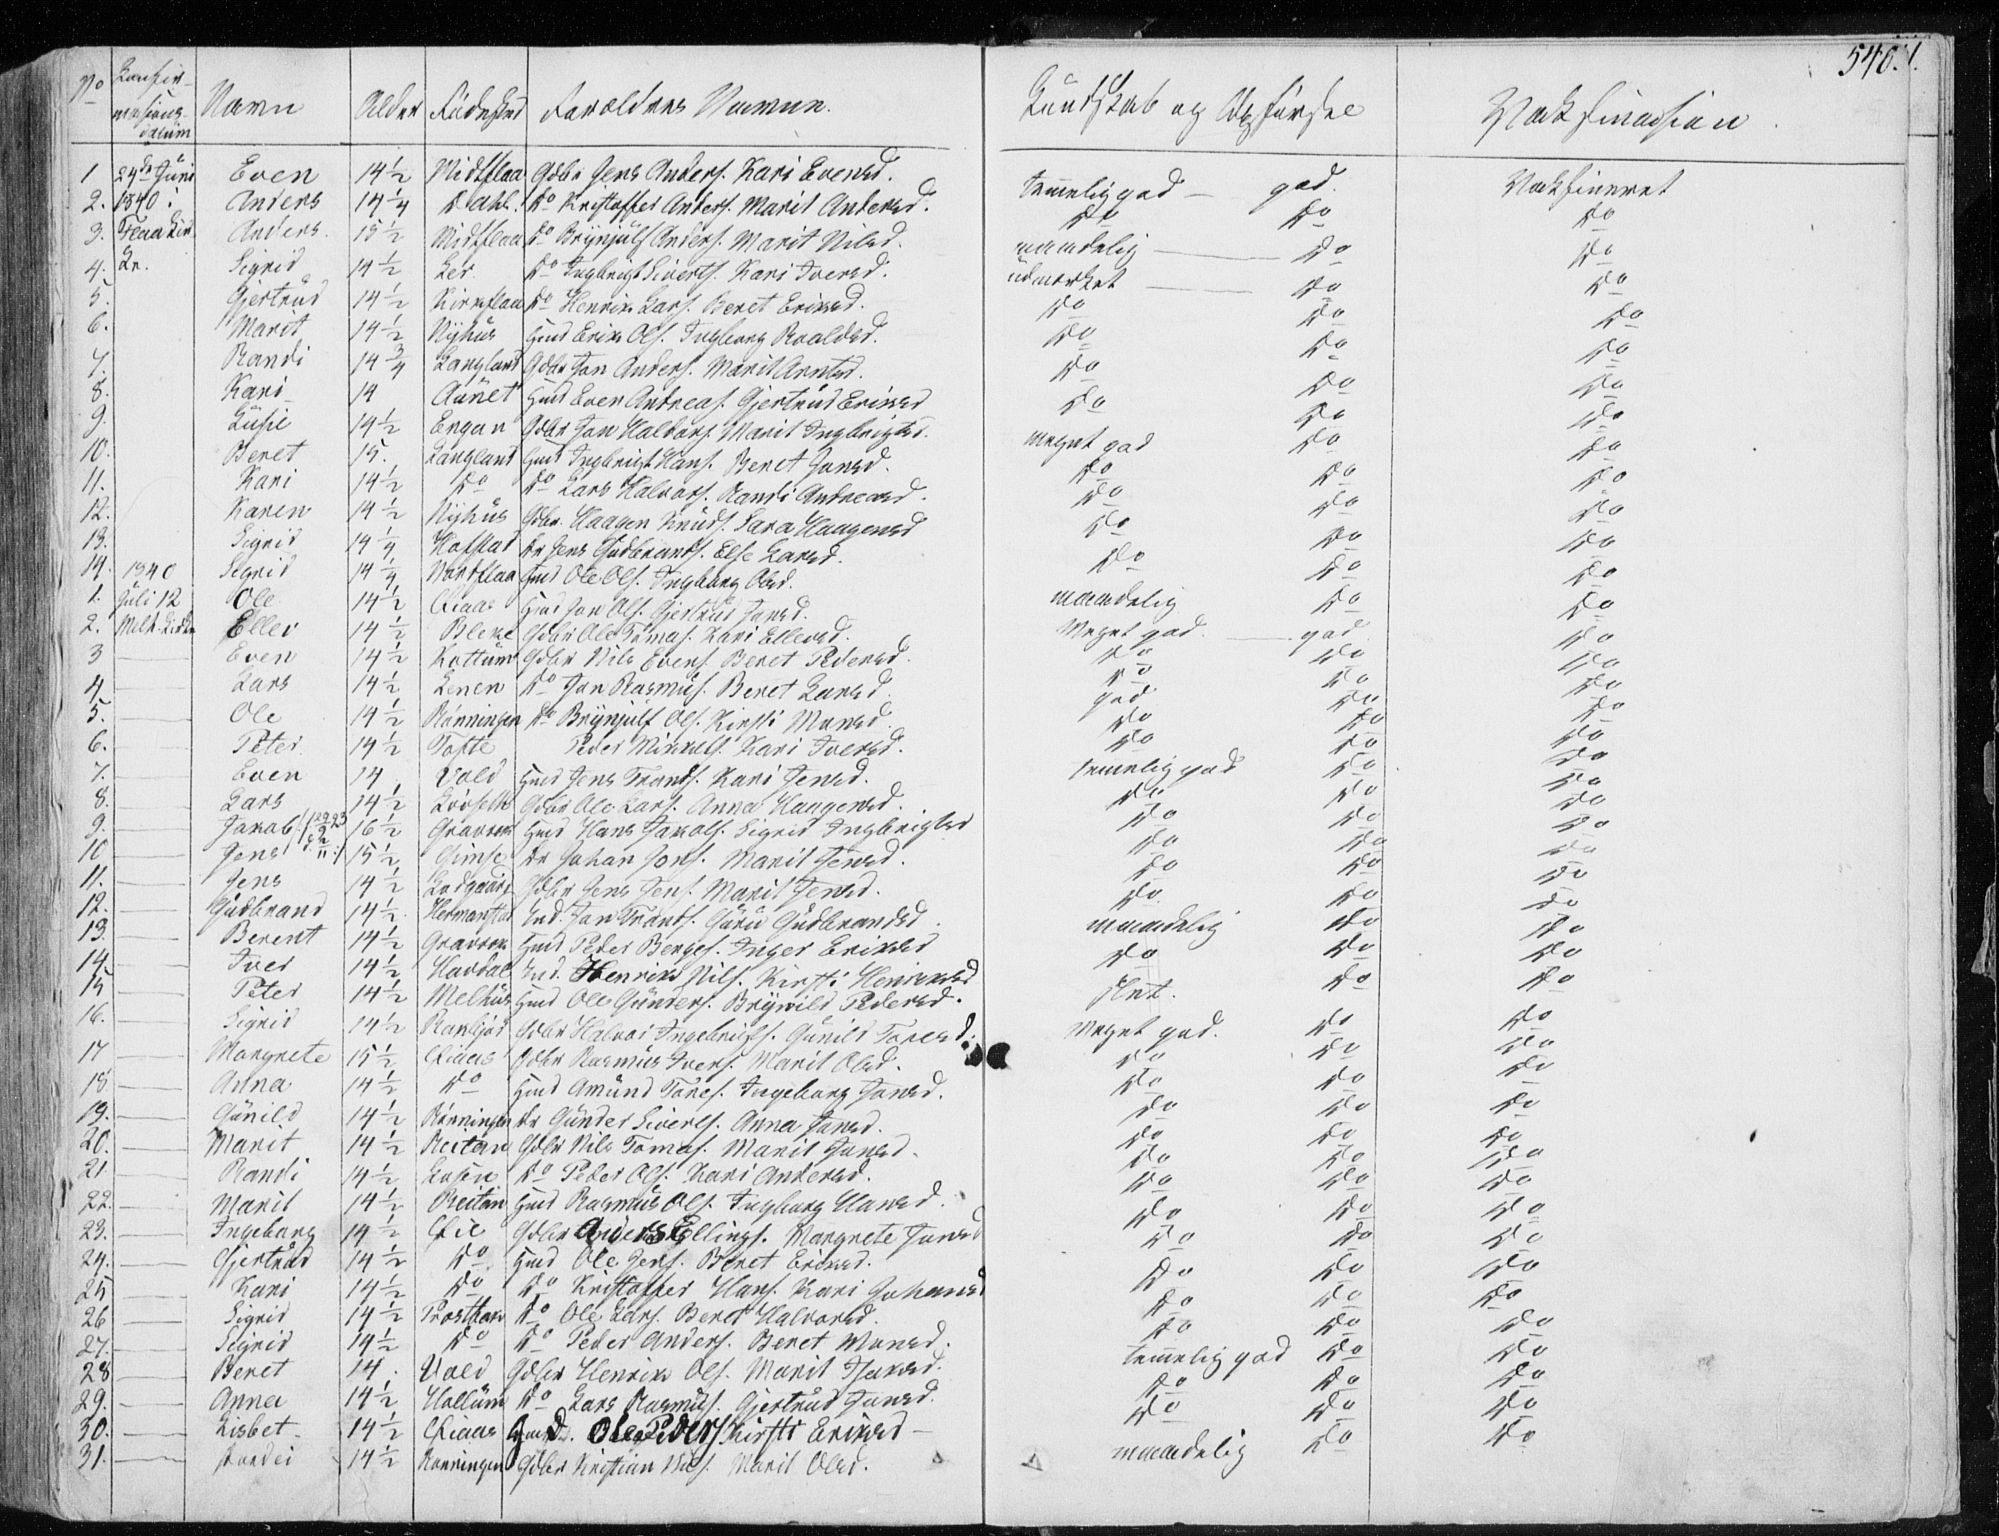 540.1.
No Konfirmasions datum Navn Alder Födested Foreldres Navnen. Kundskab og Opförsel Vaksinasion.
1 24de Juni Even 14 1/2 Midtflaa Gdbr Jens Anders. Kari Evensd. temelig god — god. Vaksineret
2. 1840 i Anders 14 1/4 Dahl. Do Kristoffer Anders. Marit Andersd. Do Do Do
3. Flaa Kir- Anders. 15 1/2 Midtflaa Do Brynjulf Anders. Marit Nilsd. maadelig — Do Do
4. ke. Sigrid 14 1/2 Ler Do Ingbrigt Siverts. Kari Iversd. udmerket — Do Do
5. Gjertrud 14 1/2 Kirkflaa Do Henrik Lars. Beret Eriksd. Do Do Do
6. Marit 14 1/2 Nyhus Hmd Erik Ols. Ingborg Roaldsd. Do Do Do
7. Randi 14 3/4 Langland Gdbr Jon Anders. Marit Arntsd. Do Do Do
8. Kari 14 Aunet Hmd Even Andreas. Gjertrud Eriksd Do Do Do
9. Lusie 14 1/2 Engan Gdbr Jon Haldors. Marit Ingbrigtsd. meget god Do Do
10. Beret 15. Langland Hmd Ingbrigt Hans. Beret Jonsd. Do Do Do
11. Kari 14 1/2 Do Do Lars Halvors. Randi Andreasd. Do Do Do
12. Karen 14 1/2 Nyhus Gdbr. Haagen Knuds. Sara Haagensd Do Do Do
13. Sigrid 14 1/4 Hofstad Do Jens Gudbrands. Else Larsd. Do Do Do
14. 1840 Sigrid 14 1/4 Nordflaa Hmd Ole Ols. Ingborg Olsd. maadelig Do Do
1. Juli 12 Ole 14 1/2 Øiaas Hmd Jon Ols. Gjertrud Jonsd. Meget god. — god. Do
2. Melh. Kirke Eller 14 1/2 Bleke Gdbr Ole Tomas. Kari Ellevsd. Do Do Do
3 — Even 14 1/2 Kottum Gdbr Nils Evens. Beret Pedersd. Do Do Do
4 — Lars 14 1/2 Lenen Do Jon Rasmus. Beret Larsd. god Do Do
5. — Ole 14 1/2 Rönningen Do Brynjulf Ols. Kirsti Monsd. Do Do Do
6. — Peter 14 1/2 Tofte Peder Mikkels. Kari Iversd. Do Do Do
7. — Even 14 Vold Hmd Jens Tronds. Kari Jensd. temelig god Do Do
8. — Lars 14 1/2 Gdbr Ole Lars. Anna Haagensd. Do Do Do
9. — Jakob 16 1/2 Gravrok Hmd Hans Jakobs. Sigrid Ingbrigtsd Do Do Do
10 — Jens 15 1/2 Gimse Do Johan Jons. Marit Jensd. Do Do Do
11. — Jens 14 1/2 Gdbr Jens Jens. Marit Jensd. Do Do Do
12. — Gudbrand 14 1/2 Hermanstad Ind. Jon Tronds. Guru Gudbrandsd. Do Do Do
13. — Berent 14 1/2 Gravrok Hmd Peder Berges. Inger Eriksd maadelig Do Do
14. — Iver 14 1/2 Havdal Ind. Henrik Nils. Kirsti Henriksd Do Do Do
15 — Peter 14 1/2 Melhus Hmd Ole Gunders. Brynild Pedersd. slet. Do Do
16. — Sigrid 14 1/2 Gdbr Halvor Ingebrigts. Gunild Toresd. Meget god. Do Do
17 — Margrete 15 1/2 Øiaas Gdbr Rasmus Ivers. Marit Olsd. Do Do Do
18. — Anna 14 1/2 Do Hmd Amund Tores. Ingeborg Jonsd. Do Do Do
19. — Gunild 14 1/2 Rönningen Do Gunder Siverts. Anna Jonsd. Do Do Do
20. — Marit 14 1/2 Reitan Gdbr Nils Tomas. Marit Jonsd. Do Do Do
21 — Randi 14 1/2 Losen Do Peder Ols. Kari Andersd. Do Do Do
22. — Marit 14 1/2 Reitan Hmd Rasmus Ols. Ingborg Hansd. Do Do Do
23. — Ingeborg 14 1/2 Øie Gdbr Anders Ellings. Margrete Jonsd Do Do Do
24. — Gjertrud 14 1/2 Do Hmd Ole Jens. Beret Eriksd. Do Do Do
25 — Kari 14 1/2 Do Do Kristoffer Hans. Kari Johansd Do Do Do
26 — Sigrid 14 1/2 Do Ole Lars. Beret Halvorsd. Do Do Do
27. — Sigrid 14 1/2 Do Do Peder Anders. Beret Monsd. Do Do Do
28 — Beret 14. Vold Gdbr Henrik Ols. Marit Isaksd. temelig god Do Do
29. — Anna 14 1/2 Hollum Do Lars Rasmus. Gjertrud Jonsd. Do Do Do
30. — Lisbet 14 1/2 Øiaas Hmd. Ole Peders Kirsti Eriksd — Do Do Do
31. — 14 1/2 Rönningen Gdbr Kristian Nils. Marit Olsd. maadelig Do Do